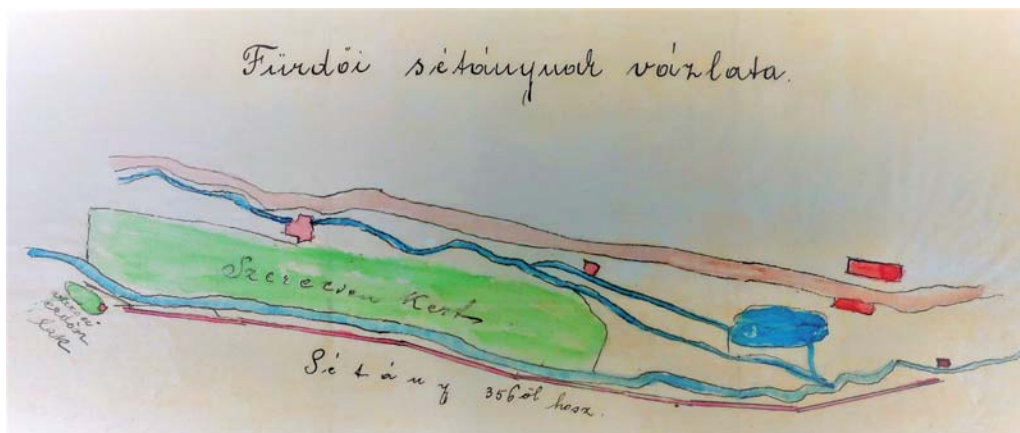 Fürdői sétánynak vázlata.
Szerecsen Kert
lak
Sétány 356 öl hosz.